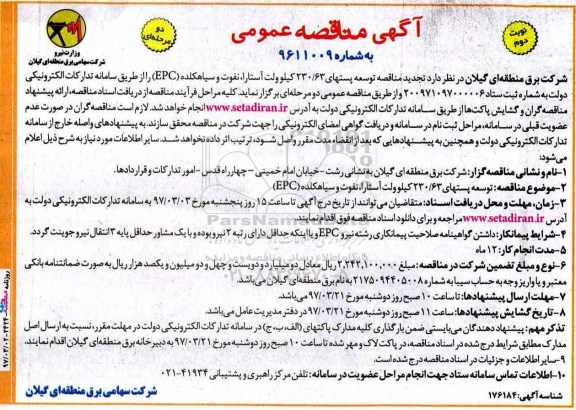 آگهی مناقصه عمومی
به شماره ۹۶۱۱۰۰۹
نوبت دوم
دو مرحله‌ای
وزارت نیرو
شرکت سهامی برق منطقه‌ای گیلان
شرکت برق منطقه‌ای گیلان در نظر دارد تجدید مناقصه توسعه پستهای ۲۳۰/۶۳ کیلو ولت آستارا، نفوت و سیاهکلده (EPC) را از طریق سامانه تدارکات الکترونیکی
دولت به شماره ثبت ستاد ۲۰۰۹۷۱۰۹۷۰۰۰۰۰۶ و از طریق مناقصه عمومی دو مرحله‌ای برگزار نماید. کلیه مراحل فرآیند مناقصه از دریافت اسناد مناقصه، ارائه پیشنهاد
مناقصه گران و گشایش پاکت‌ها از طریق سامانه تدارکات الکترونیکی دولت به آدرس www.setadiran.ir انجام خواهد شد. لازم است مناقصه گران در صورت عدم
عضویت قبلی در سامانه، مراحل ثبت نام در سامانه و دریافت گواهی امضای الکترونیکی را جهت شرکت در مناقصه محقق سازند. به پیشنهادهای واصله خارج از سامانه
تدارکات الکترونیکی دولت و همچنین به پیشنهادهایی که بعد از انقضاء مدت مقرر واصل شود، ترتیب اثر داده نخواهد شد. سایر اطلاعات مورد نیاز به شرح ذیل اعلام
می‌شود:
۱-نام و نشانی مناقصه‌گزار: شرکت برق منطقه‌ای گیلان به نشانی رشت -خیابان امام خمینی -چهارراه قدس -امور تدارکات و قراردادها.
۲-موضوع مناقصه: توسعه پستهای ۲۳۰/۶۳ کیلو ولت آستارا، نفوت و سیاهکلده (EPC)
۳-زمان، مهلت و محل دریافت اسناد: متقاضیان می‌توانند از تاریخ درج آگهی تا ساعت ۱۵ روز پنجشنبه مورخ ۹۷/۰۳/۰۳ به سامانه تدارکات الکترونیکی دولت به
آدرس www.setadiran.ir مراجعه و برای دانلود اسناد مناقصه فوق اقدام نمایند.
۴-شرایط پیمانکار: داشتن گواهینامه صلاحیت پیمانکاری رشته نیرو EPC و یا اینکه حداقل دارای رتبه ۲ نیرو بوده و با یک مشاور حداقل پایه ۳ انتقال نیرو جوینت گردد.
۵-مدت انجام کار: ۱۲ ماه
۶-نوع و مبلغ تضمین شرکت در مناقصه: مبلغ ۲,۲۴۲,۱۰۰,۰۰۰ ریال معادل دو میلیارد و دویست و چهل و دو میلیون و یکصد هزار ریال به صورت ضمانتنامه بانکی
معتبر و یا واریز وجه به حساب سیبا به شماره ۲۱۷۵۰۹۴۴۰۵۰۰۸ به نام برق منطقه‌ای گیلان می‌باشد.
۷-مهلت ارسال پیشنهادها: تا ساعت ۱۰ صبح روز دوشنبه مورخ ۹۷/۰۳/۲۱ می‌باشد.
۸-تاریخ گشایش پیشنهادها: ساعت ۱۱ صبح روز دوشنبه مورخ ۹۷/۰۳/۲۱ در دفتر مدیریت عامل می‌باشد.
تذکر مهم: پیشنهاد دهندگان می‌بایستی ضمن بارگذاری کلیه مدارک پاکتهای (الف، ب، ج) در سامانه تدارکات الکترونیکی دولت در مهلت مقرر، نسبت به ارسال اصل
مدارک مطابق شرایط درج شده در اسناد مناقصه، در پاکت لاک و مهر شده تا ساعت ۱۰ صبح روز دوشنبه مورخ ۹۷/۰۳/۲۱ به دبیرخانه برق منطقه‌ای گیلان اقدام نمایند.
۹-سایر اطلاعات و جزئیات در اسناد مناقصه درج شده است.
۱۰-اطلاعات تماس سامانه ستاد جهت انجام مراحل عضویت در سامانه: تلفن مرکز راهبری و پشتیبانی ۴۱۹۳۴-۰۲۱
شناسه آگهی: ۱۷۶۱۸۴
شرکت سهامی برق منطقه‌ای گیلان